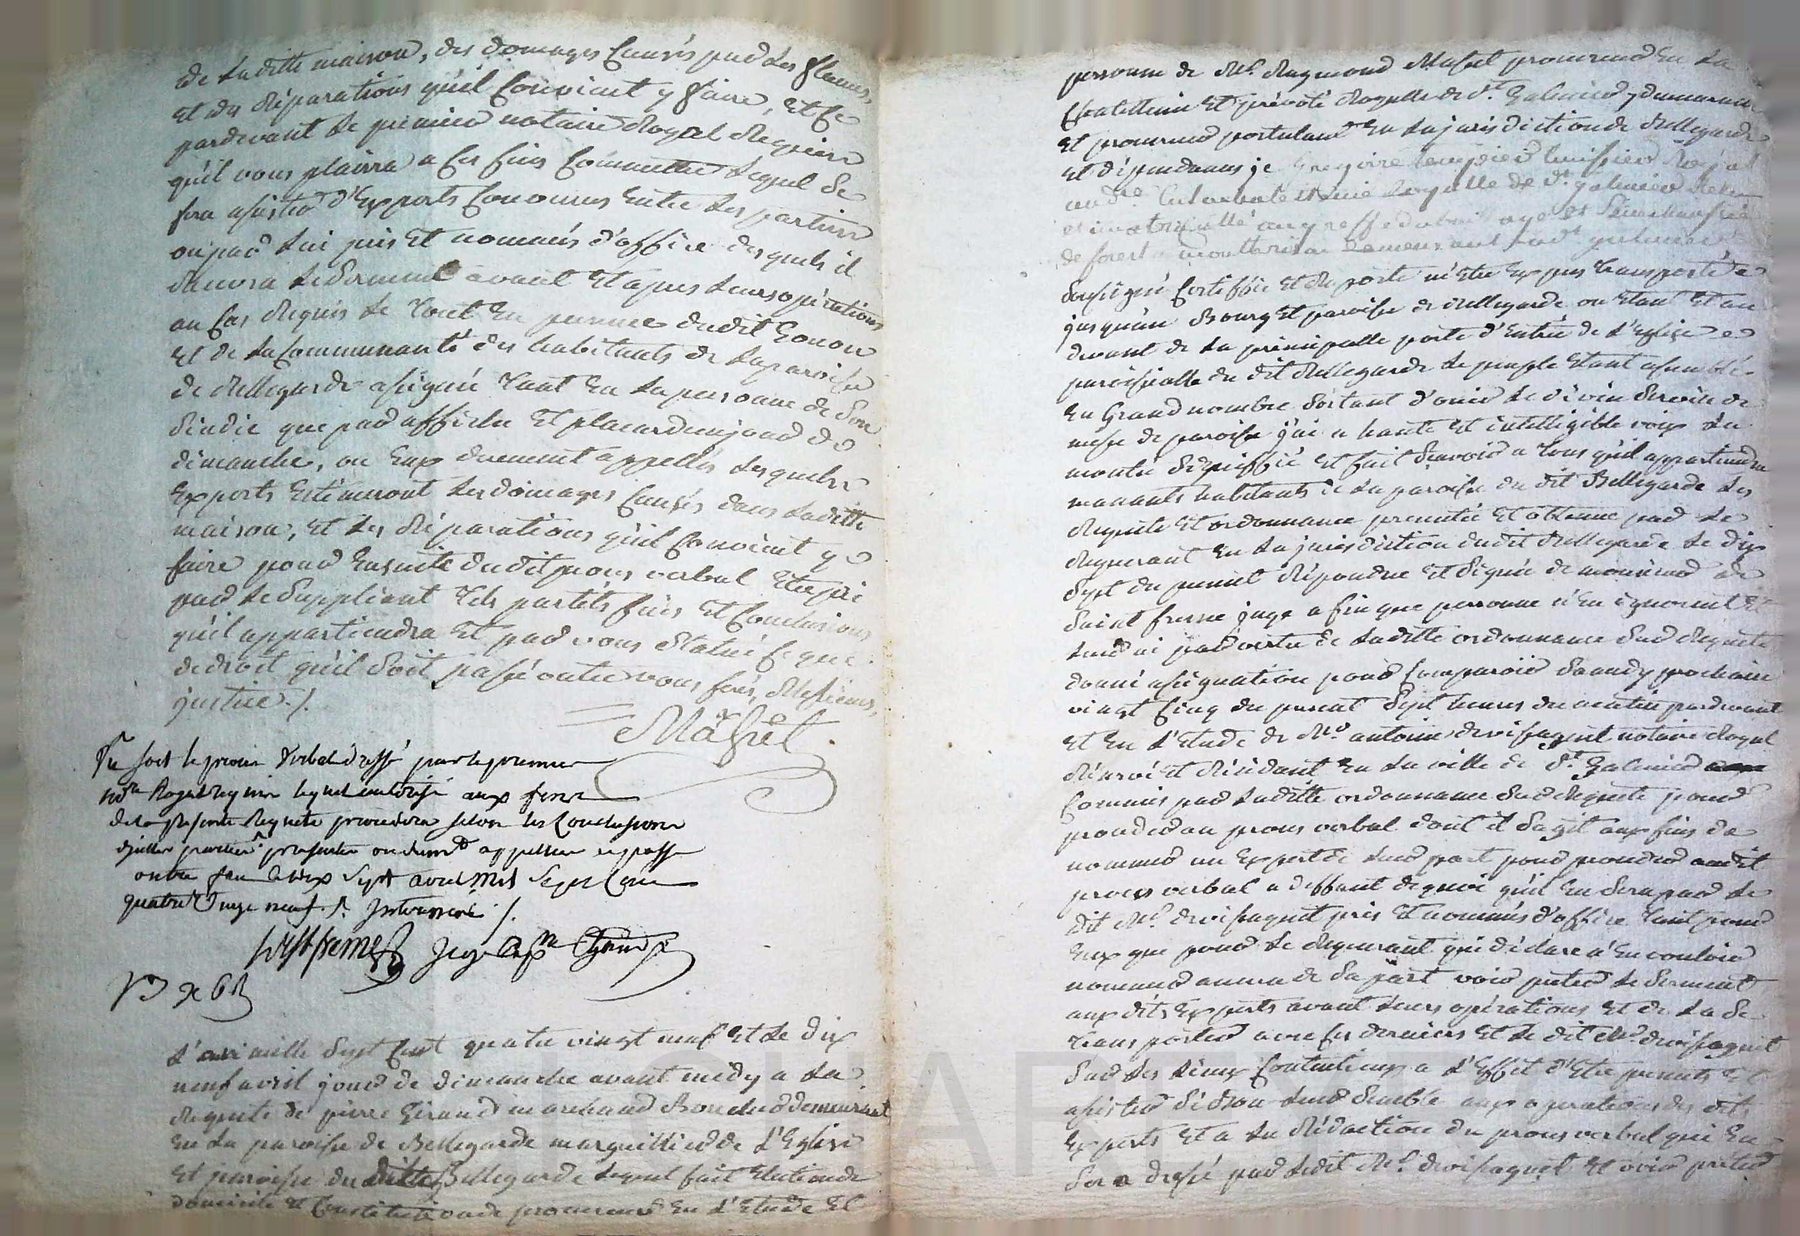 de laditte maison, des domages causés par les fermiers,
et des réparations qu'il convient y faire, et ce
pardevant le premier notaire Royal Requis
qu'il vous plairra a ces fins commettre lequel se
fera assister d'Experts convenus Entre les parties
ou par lui pris et nommés d'office desquels il
prendra le serment avant et apres leurs opérations
au cas Requis le tout En presence dudit Gonon
et de la Communauté des habitants de la paroisse
de Bellegarde assignée tant En la personne de son
sindic que par affiche et placard un jour de
dimanche, ou Eux duement appellés lesquels
Experts Estimeront les domages causés dans laditte
maison, et les Réparations qu'il convient y
faire pour Ensuitte dudit procès verbal Etre pris
par le suppliant tels partis fins et Conclusions
qu'il appartiendra Et par vous statué ce que
de droit qu'il soit passé outre vous ferés, Messieurs,
justice ./.
Mathet
soit le procès verbal dressé par le premier
nore Royal requis lequel autorisé aux fins
de la presente Requete procedera selon les Conclusions
d'jcelle parties presentes ou duemt appellées et passé
outre fait le dix sept avril mil sept cent
quatre vingt neuf ./.
juge
l'an mille sept cent quatre vingt neuf Et le dix
neuf avril jour de dimanche avant midy a la
Requete de pierre Girard marchand Boucher demeurant
En la paroisse de Bellegarde marguillier de l'Eglise
et paroisse du ditte Bellegarde lequel fait Election de
domicile Et Constitution de procureur En l'Etude Et
personne de Me Raymond Mathet procureur En la
Chatellenie Et prévôté Royalle de St Galmier y demeurant
Et procureur postulant En la jurisdiction de Bellegarde
Et dépendances je Gregoire huissier Royal
Royalle de St galmier
et immatriculé au greffe du bailliage et Senechaussée
de forest a montbrison demeurant audt galmier
soussigné certiffie Et Raporte m'être Exprès transporté
jusqu'au Bourg Et paroisse de Bellegarde ou Etant Et au
devant de la principalle porte d'Entrée de l'Eglise
paroissialle du dit Bellegarde le peuple Etant assemblé
En Grand nombre sortant d'ouir le divin service de
messe de paroisse j'ai a haute Et intelligible voix lu
montré signiffié Et fait sçavoir a tous qu'il appartiendra
manants habitants de la paroisse du dit Bellegarde les
Requete Et ordonnance presentée Et obtenue par le
Requerant En la jurisdiction dudit Bellegarde le dix
sept du present Répondue Et signée de monsieur de
Saint freme juge a fin que personne n'En ignorent Et
leur ai par vertu de laditte ordonnance sur Requete
donné assignation pour comparoir samdy prochain
vingt cinq du present sept heures du matin pardevant
Et En l'Etude de Me antoine devissaguet notaire Royal
Réservé et Résidant En la ville de St Galmier
Commis par laditte ordonnance sur Requete pour
proceder au procès verbal dont il s'agit aux fins de
nommer un Expert de leur part pour proceder audit
procès verbal a deffaut de quoi qu'il En sera par le
dit Me devissaguet pris Et nommés d'office tant pour
Eux que pour le Requerant qui déclare n'En vouloir
nommer aucun de sa part voir preter le serment
aux dits Experts avant leurs opérations Et de la se
transporter avec ces derniers Et le dit Me devissaguet
sur les lieux Contentieux a l'Effet d'Etre presents Et
assister si bon leur semble aux operations des dits
Experts Et a la Rédaction du procès verbal qui En
sera dressé par ledit Me devissaguet Et voir preter